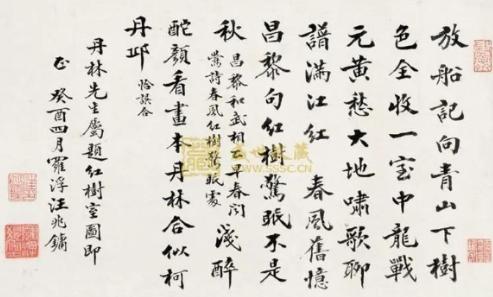 放船記向青山下樹
色全收一室中龍戰
元黃愁大地嘯歌聊
譜滿江紅 春風舊憶
昌黎句紅樹驚眠不是
秋 昌黎和武相公早春聞
鶯詩春風紅樹驚眠處 淺醉
酡顏看畫本丹林合似柯
丹邱
丹林先生屬題紅樹室圖即
正 癸酉四月羅浮汪兆鏞
盛世收藏
www.sssc.cn